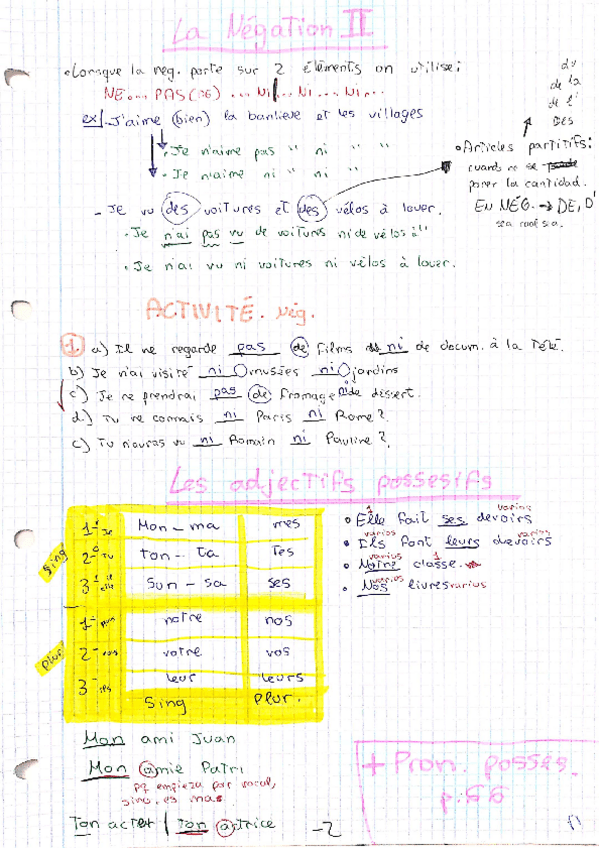 La Négation II
• Lorsque la nég. porte sur 2 éléments on utilise:
NE... PAS (DE) ... Ni ... Ni ... Ni...
ex/ J'aime (bien) la banlieue et les villages
• Je n'aime pas " ni " "
• Je n'aime ni " ni " "
du
de la
de l'
DES
• Articles partitifs:
cuando no se puede
poner la cantidad.
EN NÉG. → DE, D'
sea cual sea.
- Je vu des voitures et des vélos à louer.
• Je n'ai pas vu de voitures ni de vélos à "
• Je n'ai vu ni voitures ni vélos à louer.
ACTIVITÉ. Nég.
1. a) Il ne regarde pas de films ni de docum. à la Télé.
b) Je n'ai visité ni musées ni jardins
c) Je ne prendrai pas de fromage ni de désert.
d) Tu ne connais ni Paris ni Rome?
c) Tu n'auras vu ni Romain ni Pauline?
Les adjectifs possesifs
Sing
1ª Je Mon - ma mes
2ª Tu ton - ta Tes
3ª il elle Son - sa ses
Plur
1ª nous notre nos
2ª vous votre vos
3ª ils leur leurs
Sing Plur.
1 varios
• Elle fait ses devoirs
varios varios
• Ils font leurs devoirs
varios 1
• Notre classe.
varios
• Nos livres varios
Mon ami Juan
Mon amie Patri
pq empieza por vocal,
sino es mas.
Ton acter / ton actrice
-2
+ Pron. posses.
p.56